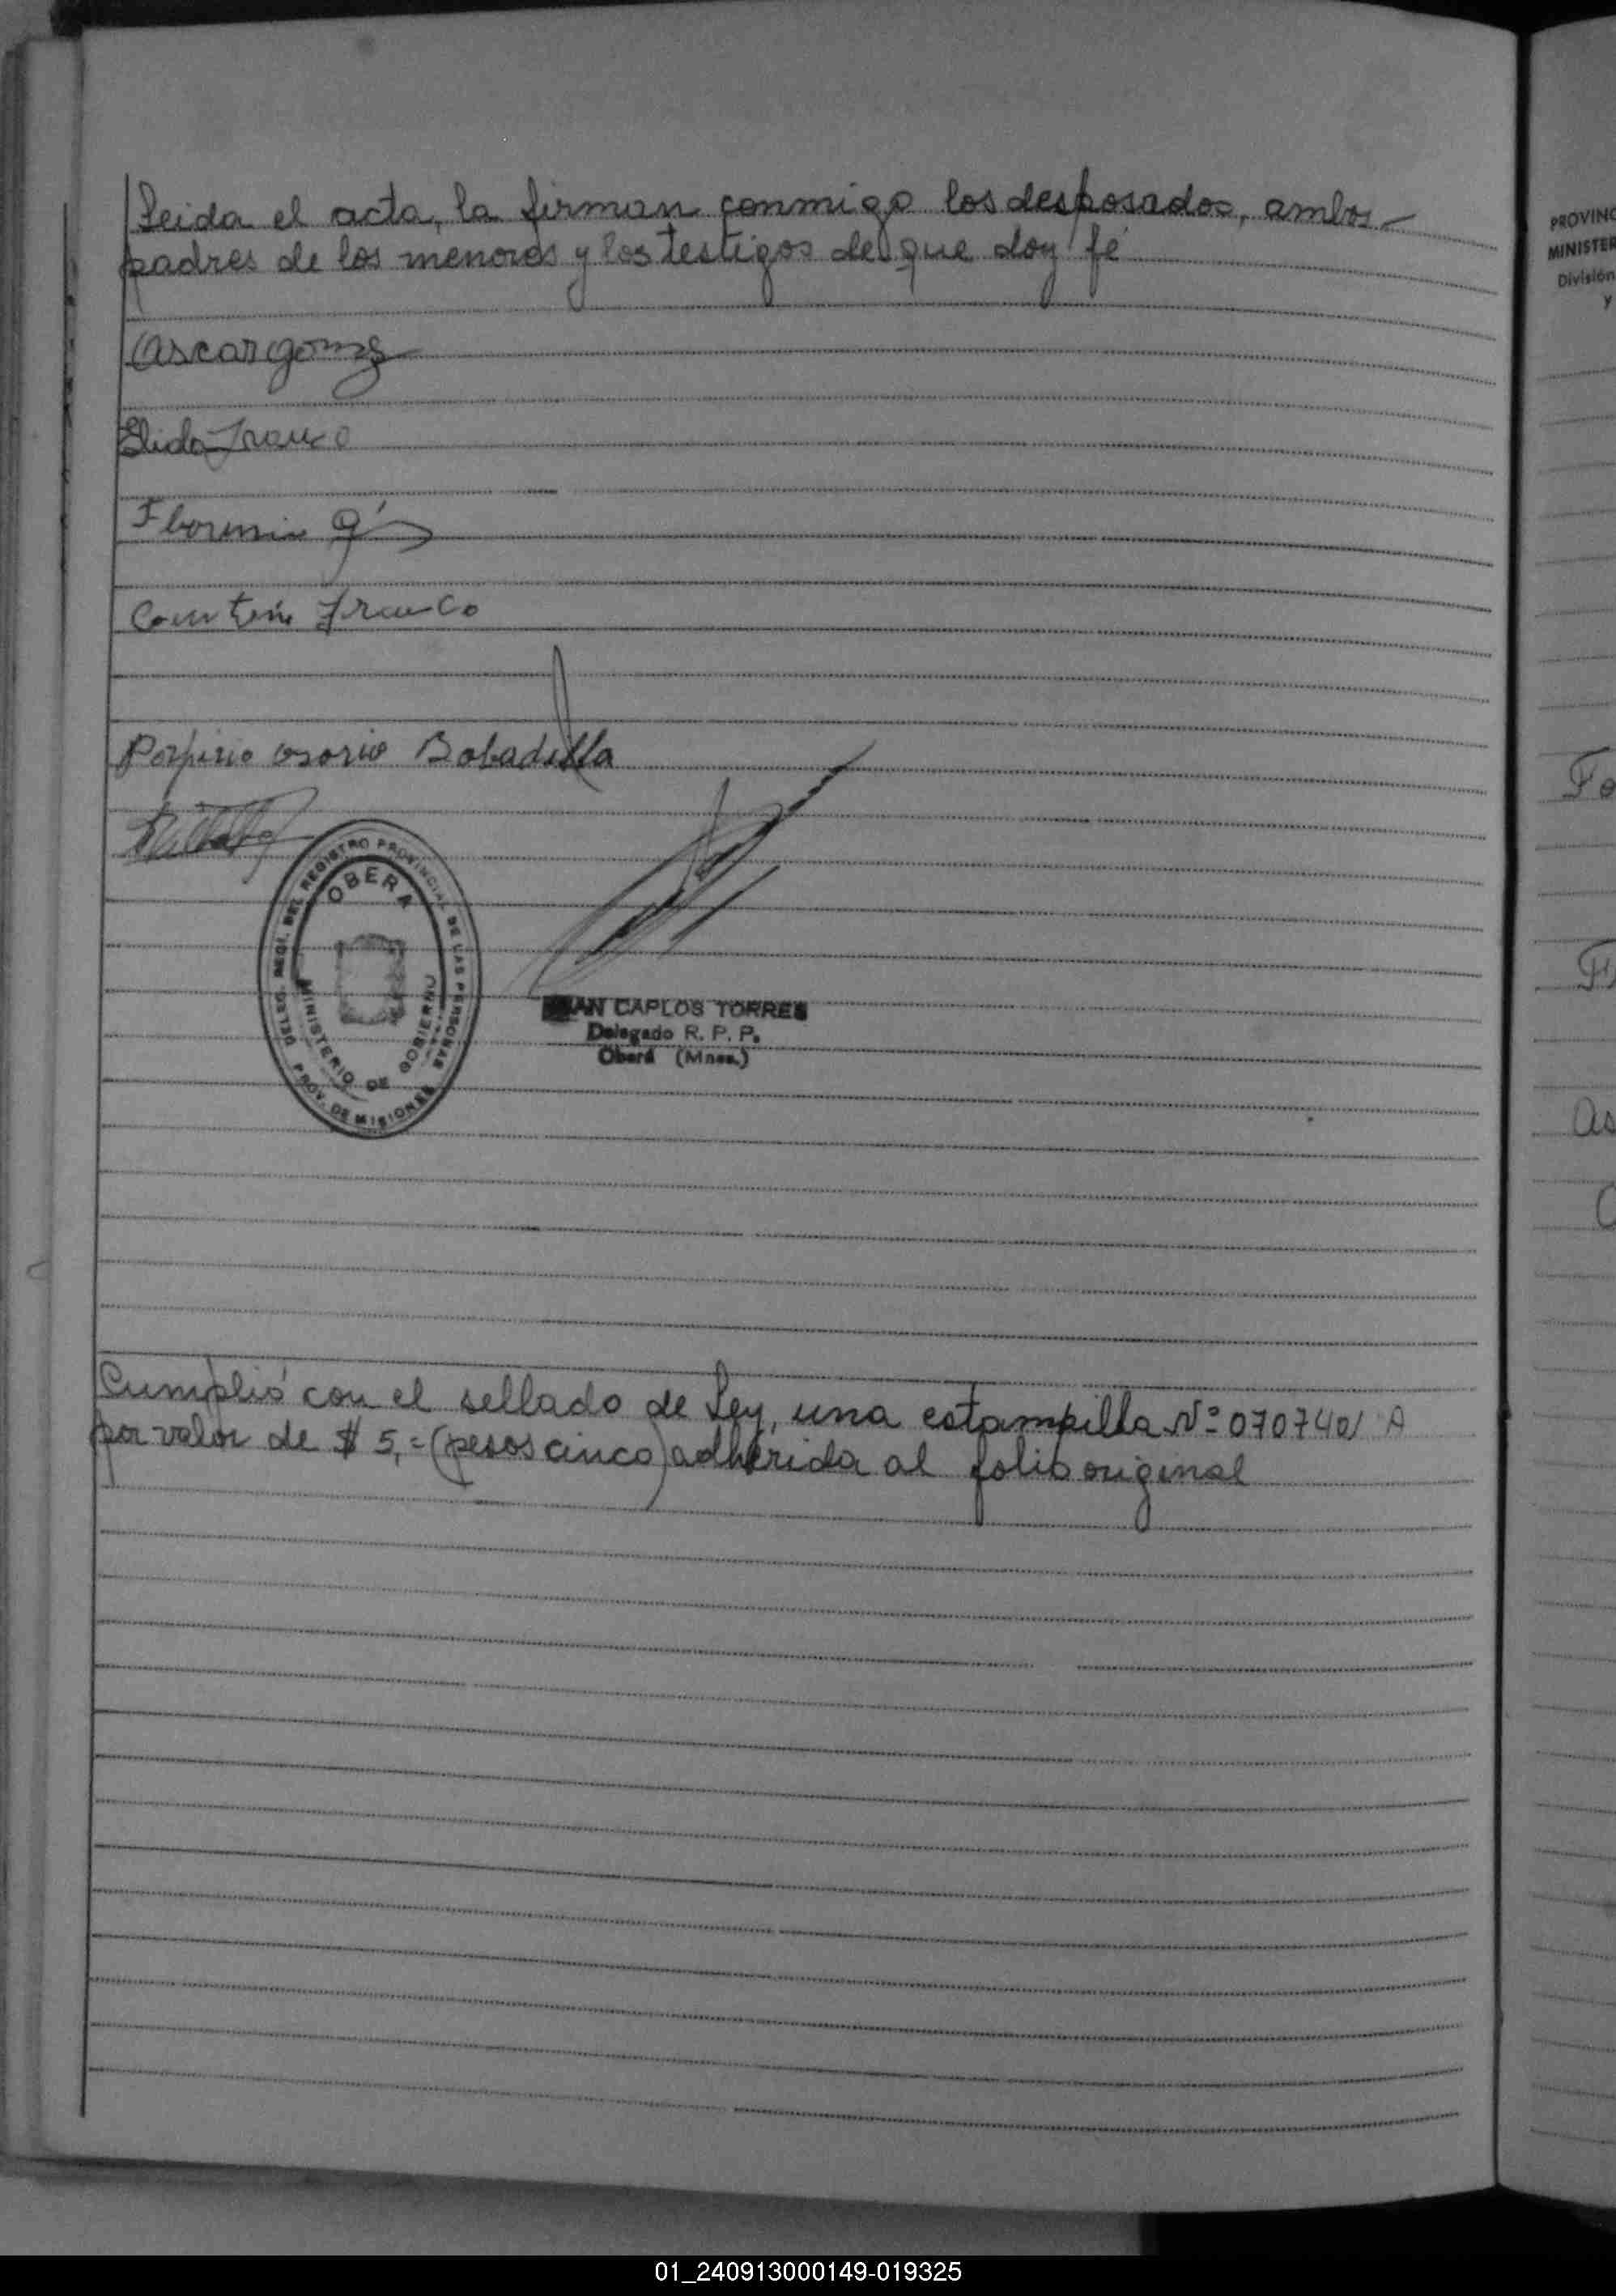 Leida el acta, la firman conmigo los desposados, ambos
padres de los menores y los testigos de que doy fé
Oscar gomez
Elida Franco
Florencio
Franco
Porfirio Osorio Bobadilla
DELEG. REGI. DEL REGISTRO PROVINCIAL DE LAS PERSONAS
OBERA
MINISTERIO DE GOBIERNO
PROV. DE MISIONES
CARLOS TORRES
Delegado R. P. P.
Oberá (Mnes.)
Cumplió con el sellado de Ley, una estampilla Nº 070740/ A
por valor de $ 5,= (pesos cinco) adherida al folio original
PROVINC
MINISTER
División
y
Fo
As
C
01_240913000149-019325